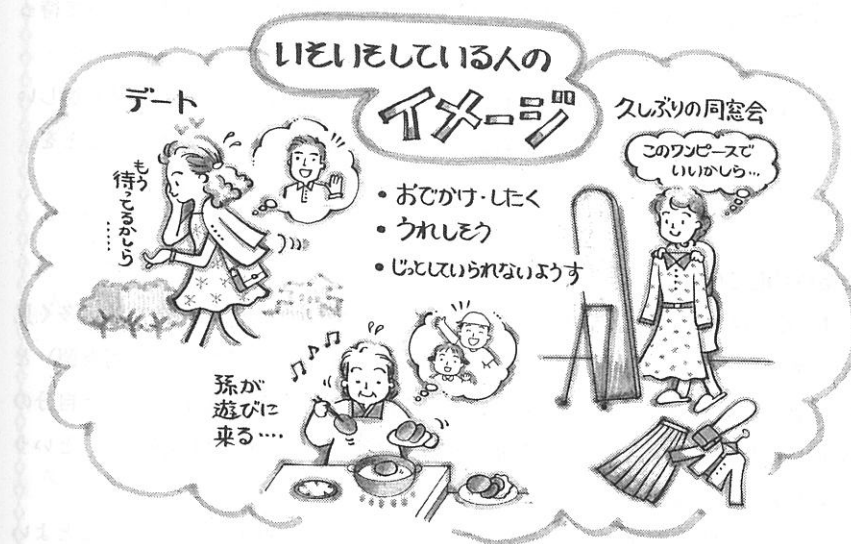 いそいそしている人の
イメージ
デート
もう
待ってるかしら
……
久しぶりの同窓会
このワンピースで
いいかしら…
・おでかけ・したく
・うれしそう
・じっとしていられないようす
孫が
遊びに
来る‥‥